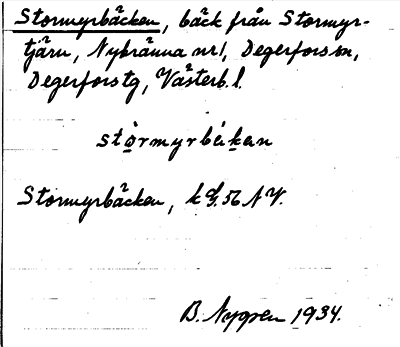 Stormyrbäcken, bäck från Stormyr-
tjärn, Nybränna nr 1, Degerfors sn,
Degerfors tg, Västerb. l.
stòrmyrbækan
Stormyrbäcken, k 56 NV.
B. Nygren 1934.